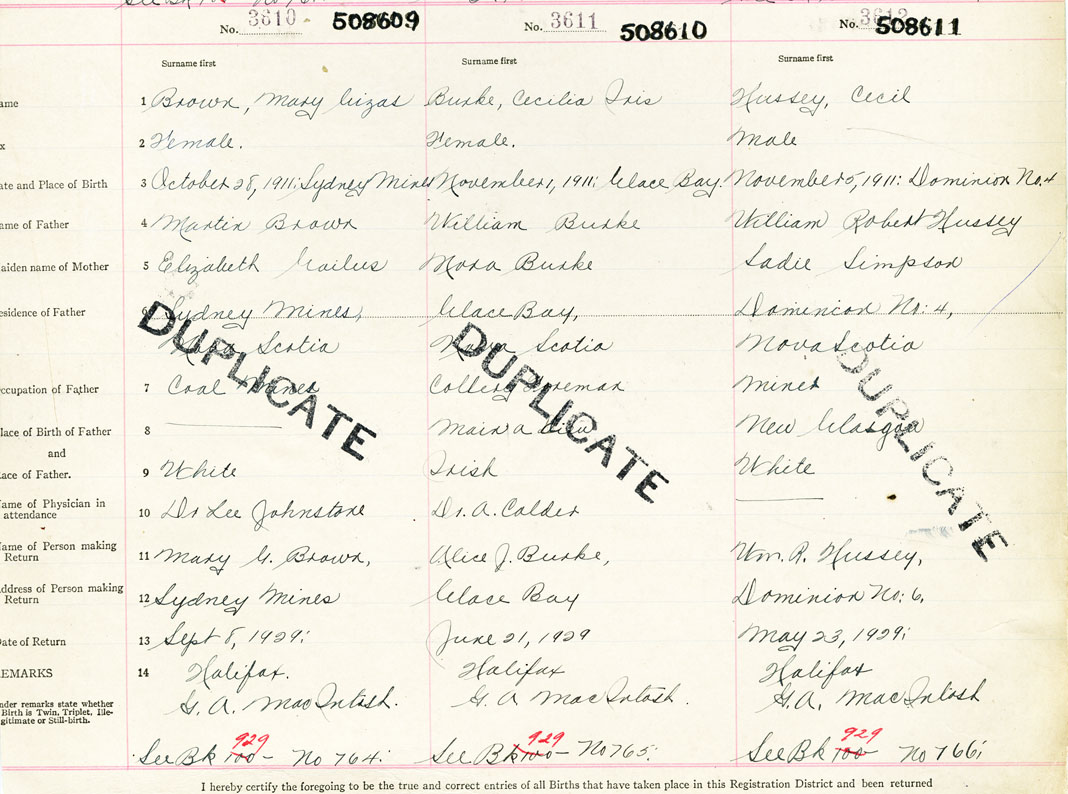 See Bk
No. 3610 508609 No. 3611 508610 No. 3612 508611
Surname first Surname first Surname first
ame 1 Brown, Mary Burke, Cecilia Iris Hussey, Cecil
x 2 Female. Female. Male
ate and Place of Birth 3 October 28, 1911: Sydney Mines November 1, 1911: Glace Bay. November 5, 1911: Dominion No. 4
ame of Father 4 Martin Brown William Burke William Robert Hussey
aiden name of Mother 5 Elizabeth Nora Burke Sadie Simpson
esidence of Father 6 Sydney Mines, Glace Bay, Dominion No: 4,
Nova Scotia Nova Scotia Nova Scotia
ccupation of Father 7 Coal Colliery Foreman Miner
lace of Birth of Father 8 Main a Dieu New Glasgow
and
ace of Father. 9 White Irish White
ame of Physician in
attendance 10 Dr Lee Johnstone Dr. A. Calder
ame of Person making
Return 11 Mary G. Brown, Alice J. Burke, Wm. R. Hussey,
ddress of Person making
Return 12 Sydney Mines Glace Bay Dominion No: 6,
ate of Return 13 Sept 8, 1929: June 21, 1929 May 23, 1929:
EMARKS 14 Halifax. Halifax Halifax
nder remarks state whether
Birth is Twin, Triplet, Ille-
gitimate or Still-birth.
G. A. MacIntosh. G. A MacIntosh. G. A. MacIntosh
929 929 929
See Bk 100 - No 764: See Bk 100 - No 765: See Bk 100 No 766:
DUPLICATE
DUPLICATE
DUPLICATE
I hereby certify the foregoing to be the true and correct entries of all Births that have taken place in this Registration District and been returned